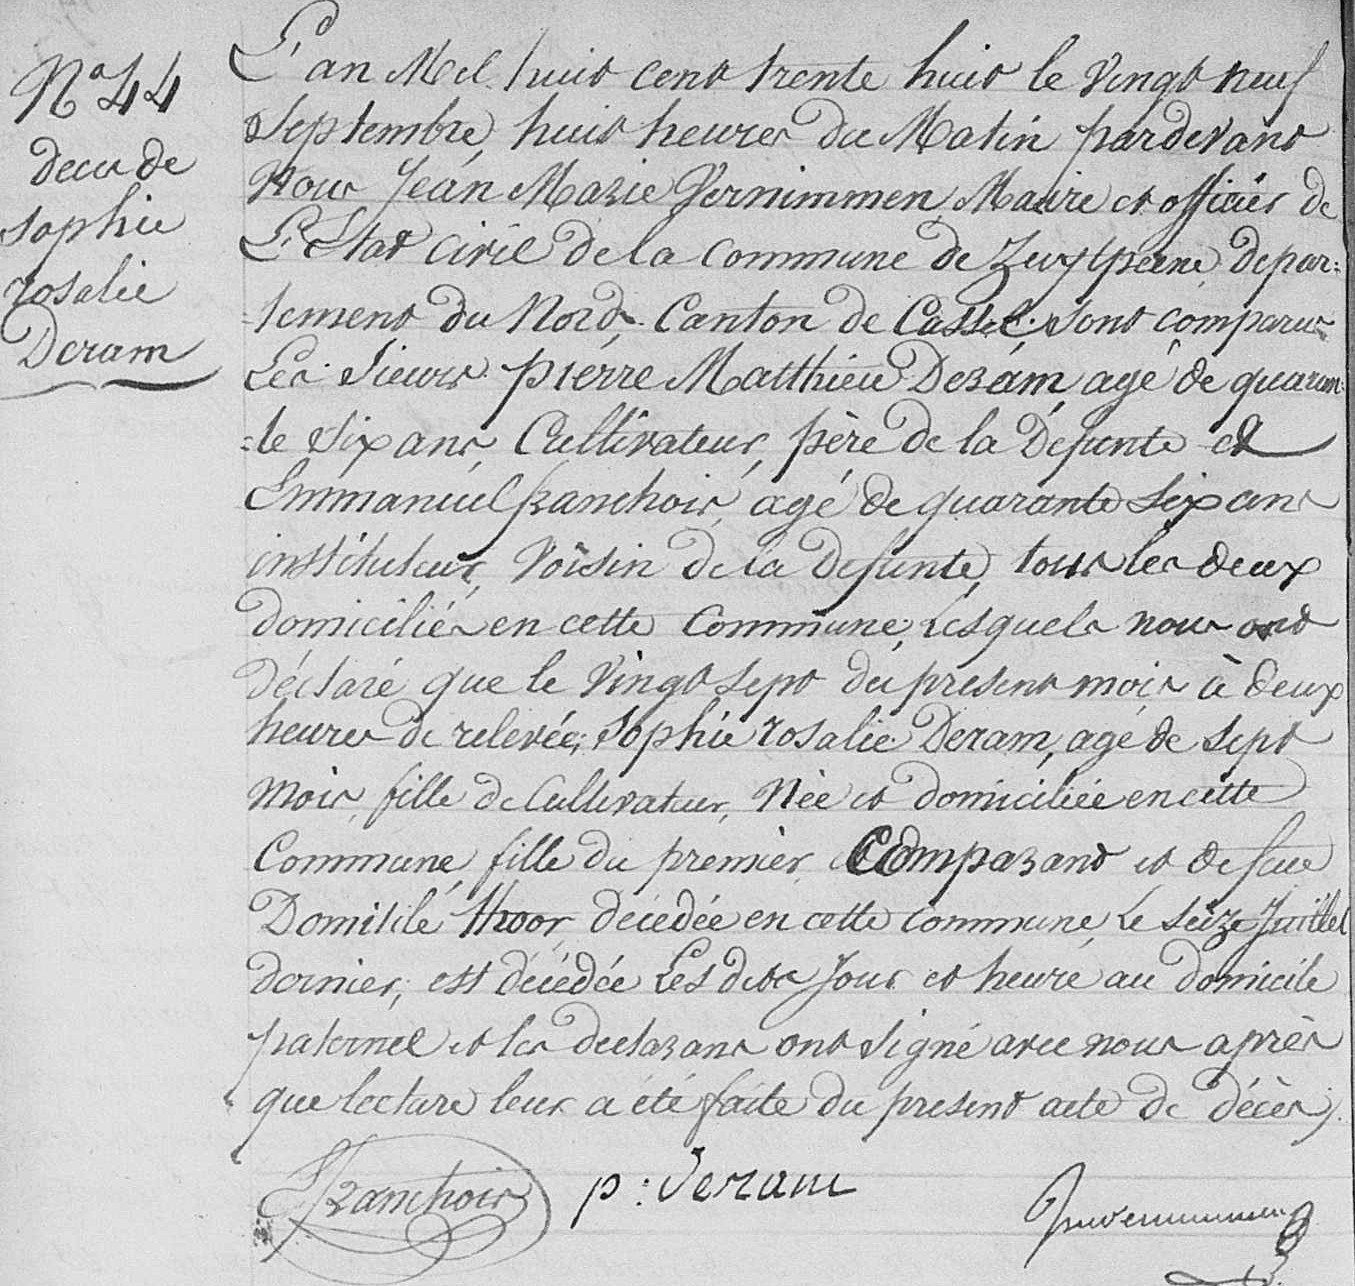 N° 44
deces de
sophie
rosalie
Deram
L'an Mil huit cent trente huit le vingt neuf
Septembre, huit heures du Matin pardevant
Nous Jean Marie Vernimmen Maire et officier de
L'Etat civil de la commune de Zuytpeene, depar-
-tement du Nord, Canton de Cassel, sont comparus
Les Sieurs pierre Matthieu Deram, agé de quaran-
-te Six ans, Cultivateur, père de la Défunte et
Emmanuel franchois, agé de quarante Six ans
instituteur, Voisin de la Defunte, tous les deux
domiciliés en cette Commune, Lesquels nous ont
Déclaré que le Vingt sept du present mois à deux
heures de relevée, sophie rosalie Deram, agé de sept
Mois, fille de Cultivateur, Née et domiciliée en cette
Commune, fille du premier Comparant et de feue
Domitile thoor, décédée en cette commune, Le seize Juillet
dernier, est décédée Les dits Jour et heure au domicile
paternel et les declarans ont signé avec nous après
que lecture leur a été faite du present acte de décès.
franchois p: Deram Jmvernimmen